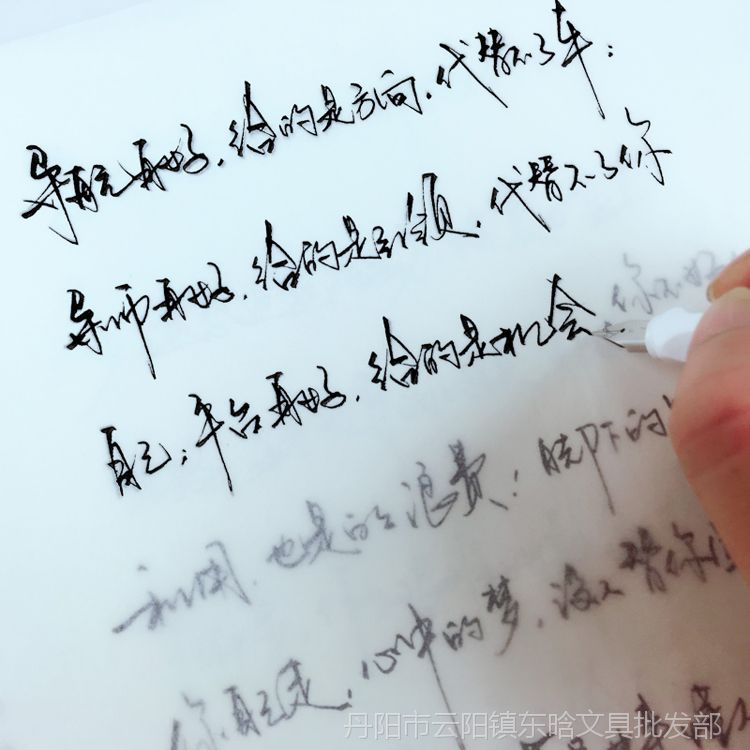 导航再好，给的是方向，代替不了车；
导师再好，给的是引领，代替不了你
自己；平台再好，给的是机会 你不好
利用，也是白浪费；脚下的
你自己走，心中的梦，没人替你
丹阳市云阳镇东晗文具批发部